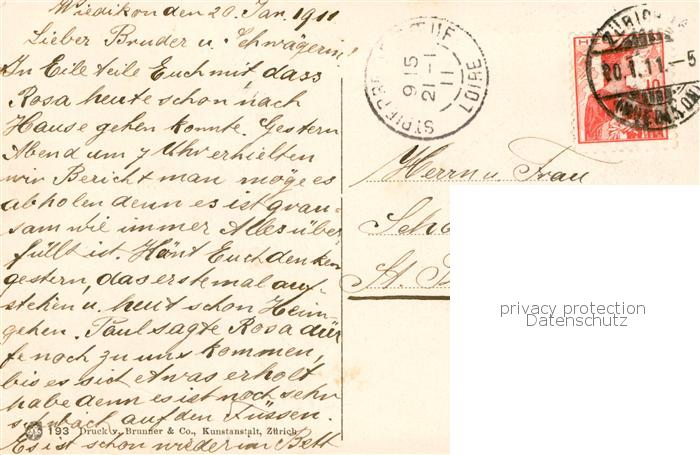 Wiedikon den 20 Jan. 1911
Lieber Bruder u. Schwägerin!
In Eile teile Euch mit, dass
Rosa heute schon nach
Hause gehen konnte. Gestern
Abend um 7 Uhr erhielten
wir Bericht man möge es
abholen denn es ist grau-
sam wie immer Alles über
füllt ist. Könt Euch denken
gestern, das erstemal auf-
stehen u. heut schon Heim-
gehen. Paul sagte Rosa dür
fe noch zu uns kommen,
bis es sich etwas erholt
habe denn es ist noch sehr
schwach auf den Füssen.
Es ist schon wieder im Bett
193 Druck v. Brunner & Co., Kunstanstalt, Zürich
9 15
21-1
11
LOIRE
ZÜRICH
20.1.11.-5
10
Herrn u. Frau
St.
privacy protection
Datenschutz